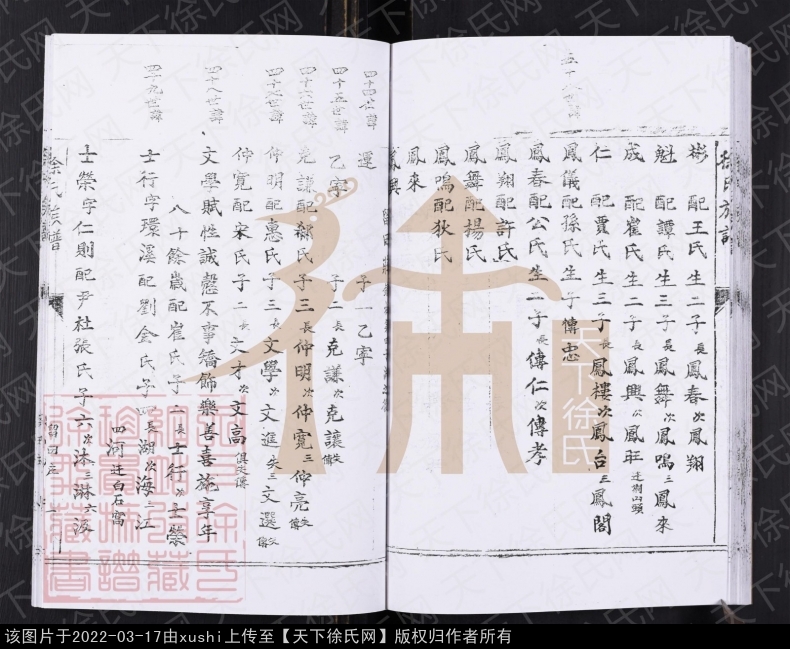 徐氏族譜
彬 配王氏生二子長鳳春次鳳翔
魁 配譚氏生三子長鳳舞次鳳鳴三鳳來
成 配崔氏生二子長鳳興次鳳旺
仁 配賈氏生三子長鳳樓次鳳台三鳳閣
鳳儀配孫氏生子傳忠
鳳春配公氏生二子長傳仁次傳孝
鳳翔配許氏
鳳舞配楊氏
鳳鳴配狄氏
鳳來
鳳興
四十四世諱
運 子一乙寧
四十五世諱
乙寧 子二長克謙次克讓失傳
四十六世諱
克謙配郝氏子三長仲明次仲寬三仲亮失傳
四十七世諱
仲明配惠氏子三長文學次文進失三文選失傳
仲寬配宋氏子二長文才次文高俱失傳
四十八世諱
文學賦性誠慤不事矯飾樂善喜施享年
八十餘歲配崔氏子二長士行次士榮
四十九世諱
士行字環溪配劉金氏子四長湖次海三江
四河迁白石窩
士榮字仁則配尹杜張氏子六
徐氏族譜
天下徐氏
天下徐氏网
该图片于2022-03-17由xushi上传至【天下徐氏网】版权归作者所有